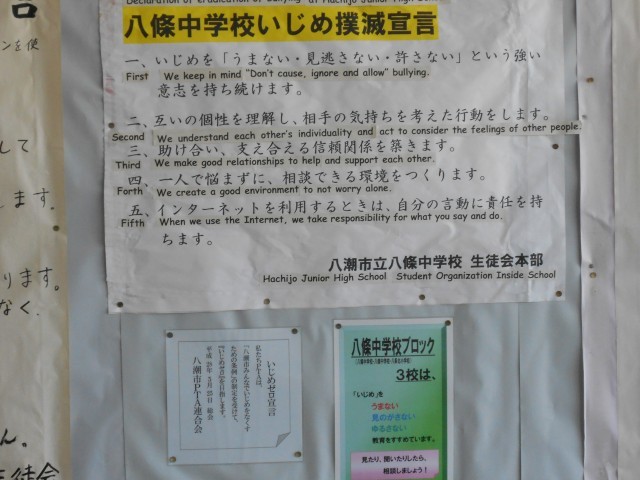 Declaration of eradication of bullying at Hachijo Junior High School
八條中学校いじめ撲滅宣言
一、いじめを「うまない・見逃さない・許さない」という強い
First We keep in mind "Don't cause, ignore and allow" bullying.
意志を持ち続けます。
二、互いの個性を理解し、相手の気持ちを考えた行動をします。
Second We understand each other's individuality and act to consider the feelings of other people.
三、助け合い、支え合える信頼関係を築きます。
Third We make good relationships to help and support each other.
四、一人で悩まずに、相談できる環境をつくります。
Forth We create a good environment to not worry alone.
五、インターネットを利用するときは、自分の言動に責任を持
Fifth When we use the Internet, we take responsibility for what you say and do.
ちます。
八潮市立八條中学校 生徒会本部
Hachijo Junior High School Student Organization Inside School
いじめゼロ宣言
私たちPTAは、
「八潮市みんなでいじめをなくす
ための条例」の制定を受けて、
「いじめゼロ」を目指します。
八潮市PTA連合会
八條中学校ブロック
3校は、
「いじめ」を
うまない
見のがさない
ゆるさない
教育をすすめています。
見たり、聞いたりしたら、
相談しましょう！
ンを使
して
します。
ります。
なく、
ん。
生徒会